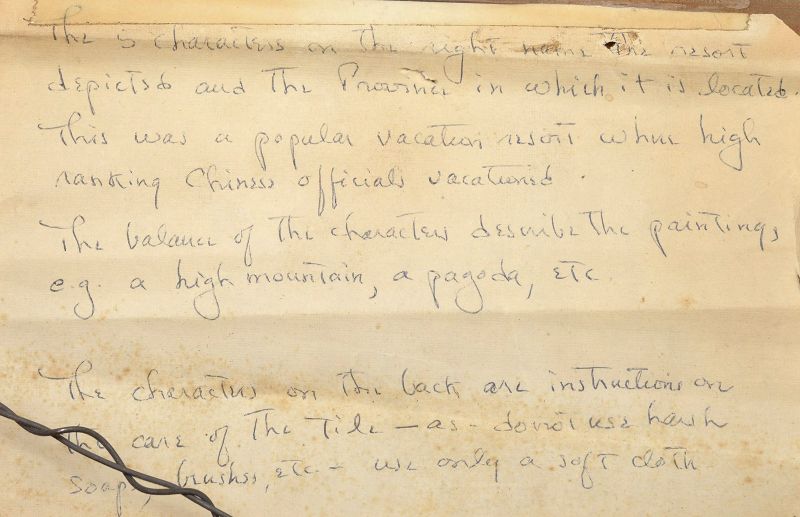 The 5 characters on the right name the resort
depicted and the Province in which it is located.
This was a popular vacation resort where high
ranking Chinese officials vacationed.
The balance of the characters describe the paintings
e.g. a high mountain, a pagoda, etc
The characters on the back are instructions on
the care of the Tile - as - do not use harsh
soap, brushes, etc. - use only a soft cloth